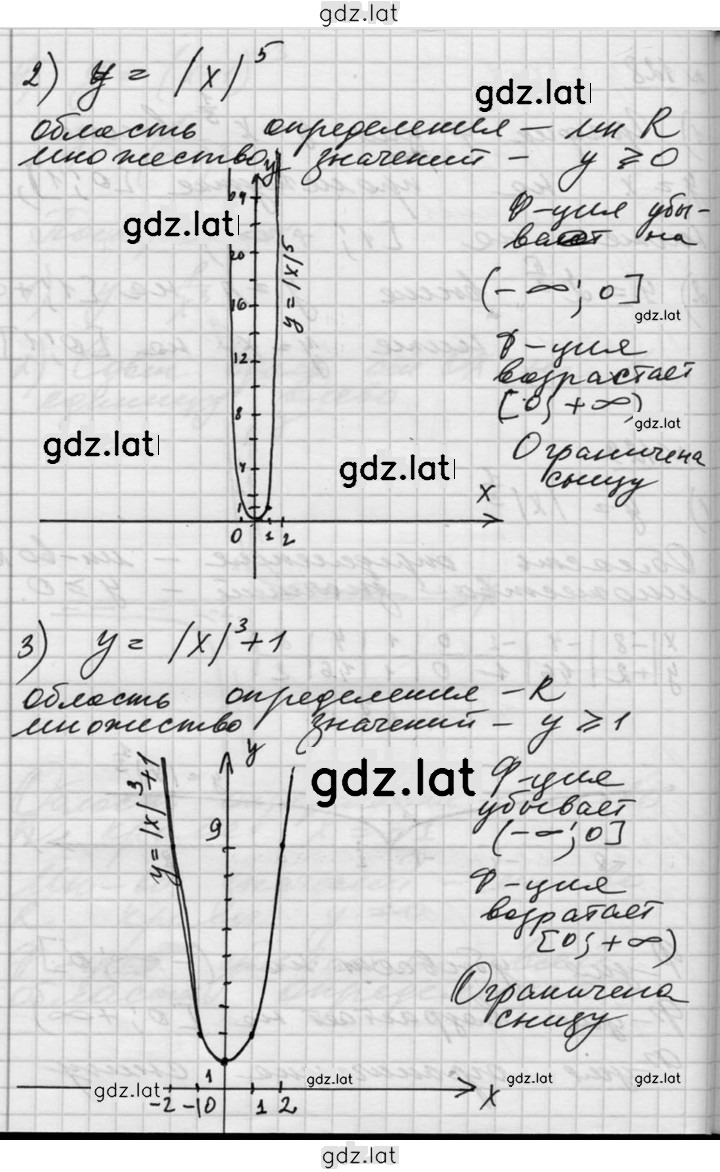 gdz.lat
2) y = |x|⁵
gdz.lat
область определения – мн R
множество значений – y ⩾ 0
y
gdz.lat
24
20
16
12
8
4
y = |x|⁵
Ф-ция убы-
вает на
(-∞; 0]
gdz.lat
Ф-ция
возрастает
[0; +∞)
gdz.lat
Ограничена
снизу
gdz.lat
gdz.lat
x
0 1 2
3) y = |x|³+1
область определения – R
множество значений – y ⩾ 1
y
y = |x|³+1
gdz.lat
9
Ф-ция
убывает
(-∞; 0]
Ф-ция
возратает
[0; +∞)
Ограничена
снизу
1
gdz.lat
gdz.lat
gdz.lat
gdz.lat
-2 -1 0 1 2 x
gdz.lat